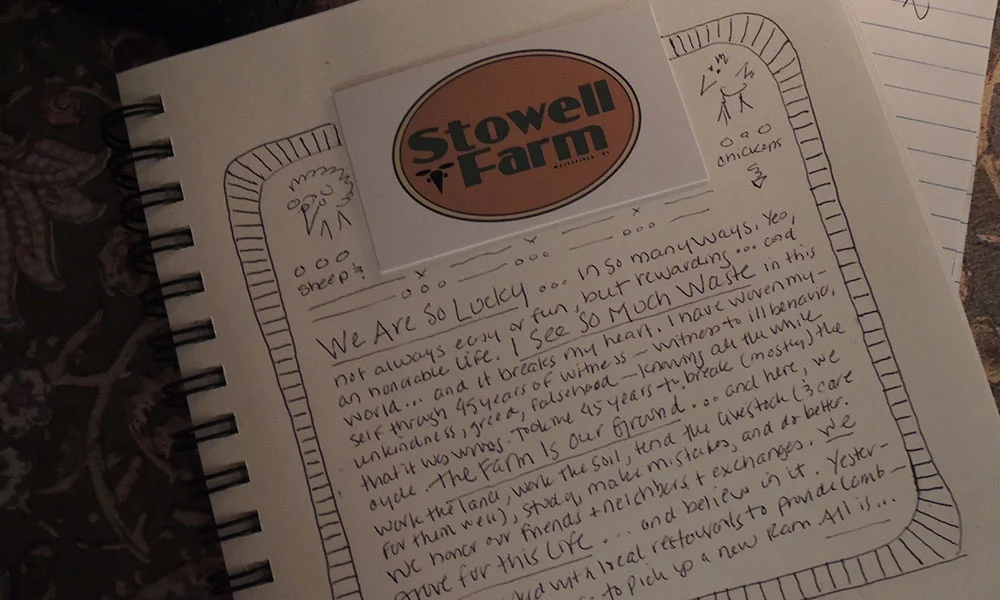 Stowell
Farm
chickens
sheep &
We Are So Lucky ... in so many ways. Yeo,
not always easy or fun, but rewarding ... and
an honorable life. I See So Much Waste in this
world... and it breaks my heart. I have woven my-
self through 45 years of witness - witness to ill behavior,
unkindness, greed, falsehood - knowing all the while
that it was wrong. Took me 45 years to break (mostly) the
cycle. The Farm Is Our Ground ... and here, we
work the land, work the soil, tend the livestock (& care
for them well), study, make mistakes, and do better.
We honor our friends + neighbors + exchanges. We
strive for this Life ... and believe in it. Yester-
with local restaurants to provide lamb -
to pick up a new Ram. All is...